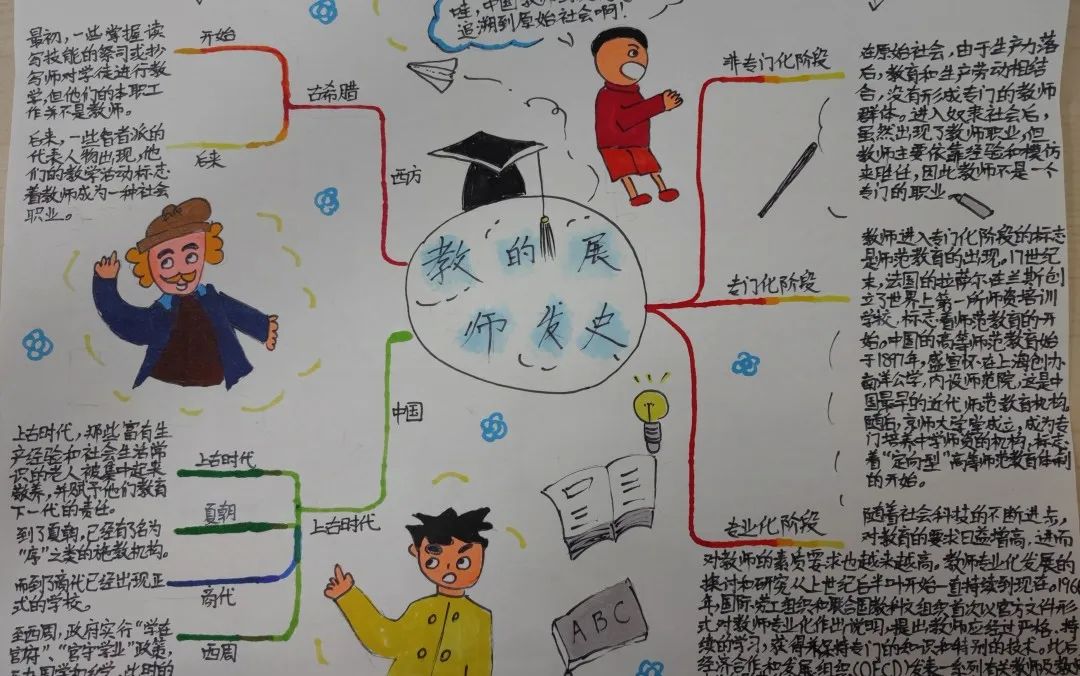 哇，中国教师
追溯到原始社会啊！
教的展
师发史
西方
古希腊
开始
最初，一些掌握读
写技能的祭司或抄
写师对学徒进行教
学，但他们的本职工
作并不是教师。
后来
后来，一些智者派的
代表人物出现，他
们的教学活动标志
着教师成为一种社会
职业。
中国
上古时代
上古时代
上古时代，那些富有生
产经验和社会生活常
识的老人被集中起来
敬养，并赋予他们教育
下一代的责任。
夏朝
到了夏朝，已经有了名为
“序”之类的施教机构。
商代
而到了商代已经出现正
式的学校。
西周
至西周，政府实行“学在
官府”“官守学业”政策，
非专门化阶段
在原始社会，由于生产力落
后，教育和生产劳动相结
合，没有形成专门的教师
群体。进入奴隶社会后，
虽然出现了教师职业，但
教师主要依靠经验和模仿
来胜任，因此教师不是一个
专门的职业。
专门化阶段
教师进入专门化阶段的标志
是师范教育的出现。17世纪
末，法国的拉萨尔在兰斯创
立了世界上第一所师资培训
学校，标志着师范教育的开
始。中国的高等师范教育始
于1897年，盛宣怀在上海创办
南洋公学，内设师范院，这是中
国最早的近代师范教育机构。
随后，京师大学堂成立，成为专
门培养中学师资的机构，标志
着“定向型”高等师范教育体制
的开始。
专业化阶段
随着社会科技的不断进步，
对教育的要求日益增高，进而
对教师的素质要求也越来越高。教师专业化发展的
探讨和研究从上世纪后半叶开始一直持续到现在。196
年，国际劳工组织和联合国教科文组织首次以官方文件形
式对教师专业化作出说明，提出教师应经过严格、持
续的学习，获得并保持专门的知识和特别的技术。此后
经济合作和发展组织(OECD)发表一系列有关教师及教
ABC